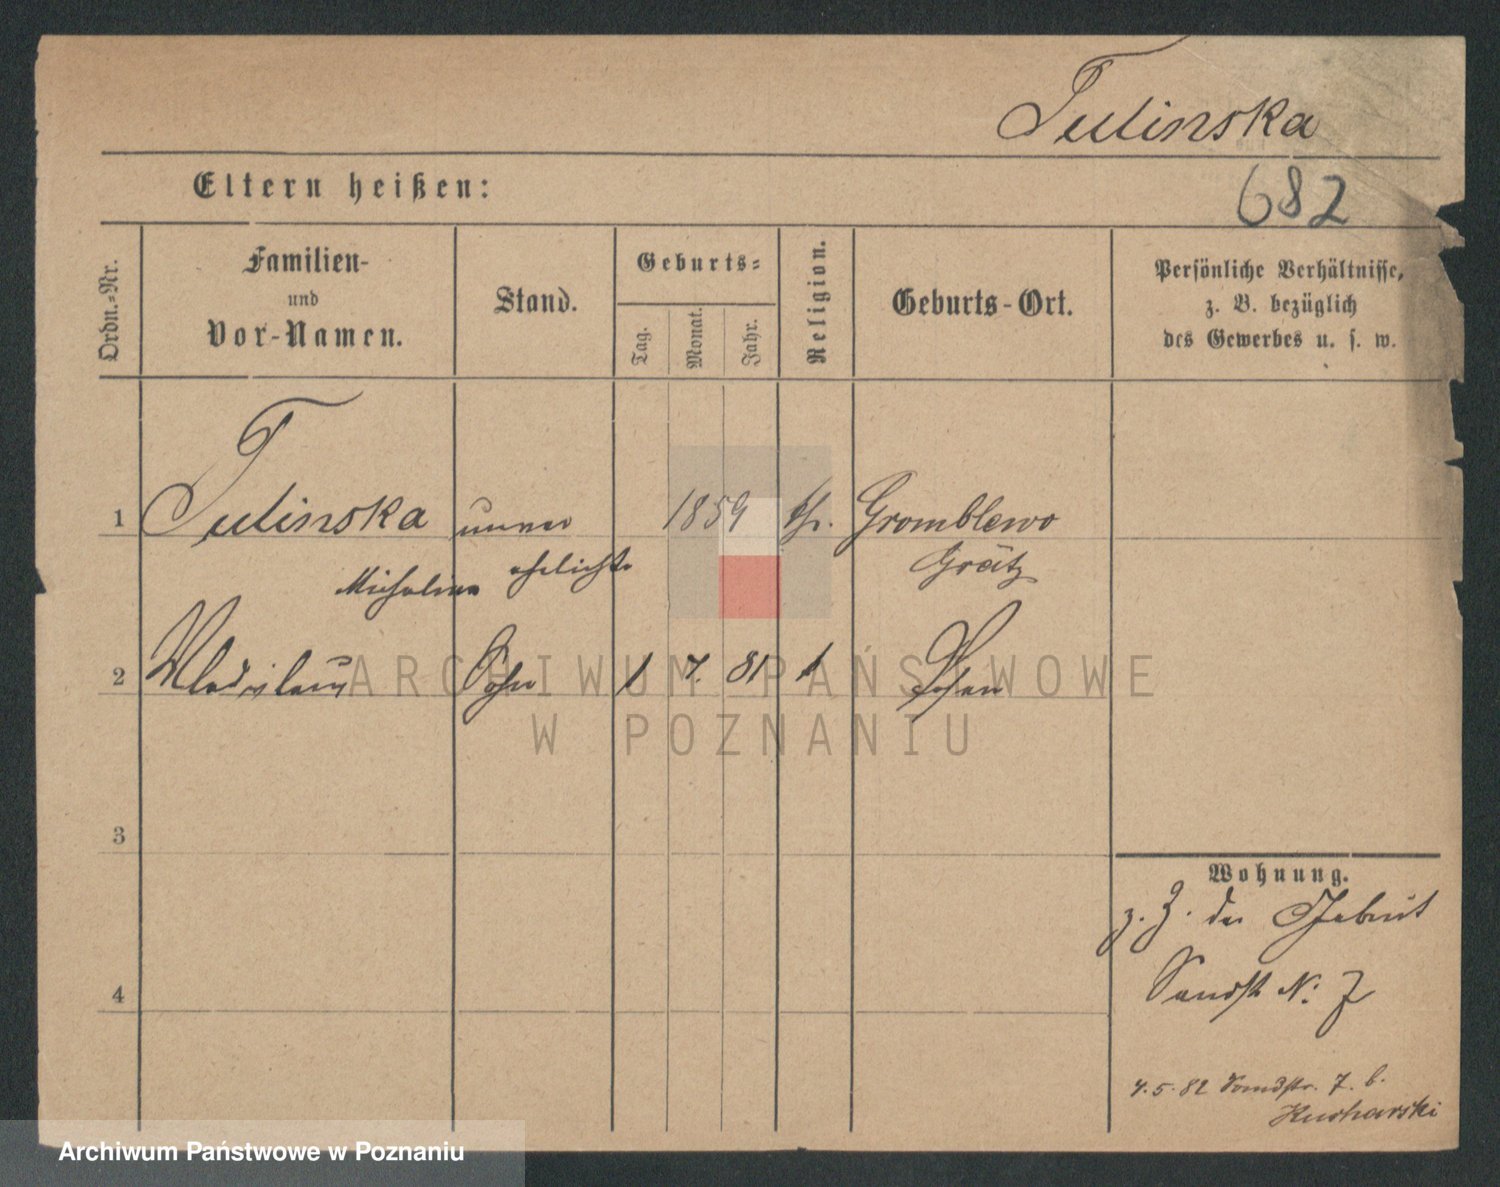 Tulinska
Eltern heißen:
682
Ordn.=Nr.
Familien-
und
Vor-Namen.
Stand.
Geburts=
Tag.
Monat.
Jahr.
Religion.
Geburts-Ort.
Persönliche Verhältnisse,
z. B. bezüglich
des Gewerbes u. s. w.
1 Tulinska unver 1859 kth. Gromblewo
Michalina ehelicht Grätz
2 Wladislaus Sohn 1 7. 81 Posen
3
Wohnung.
z. Z. der Geburt
4
Sandstr N: 7
4.5.82 Sandstr. 7. b.
Kucharski
ARCHIWUM PAŃSTWOWE
W POZNANIU
Archiwum Państwowe w Poznaniu